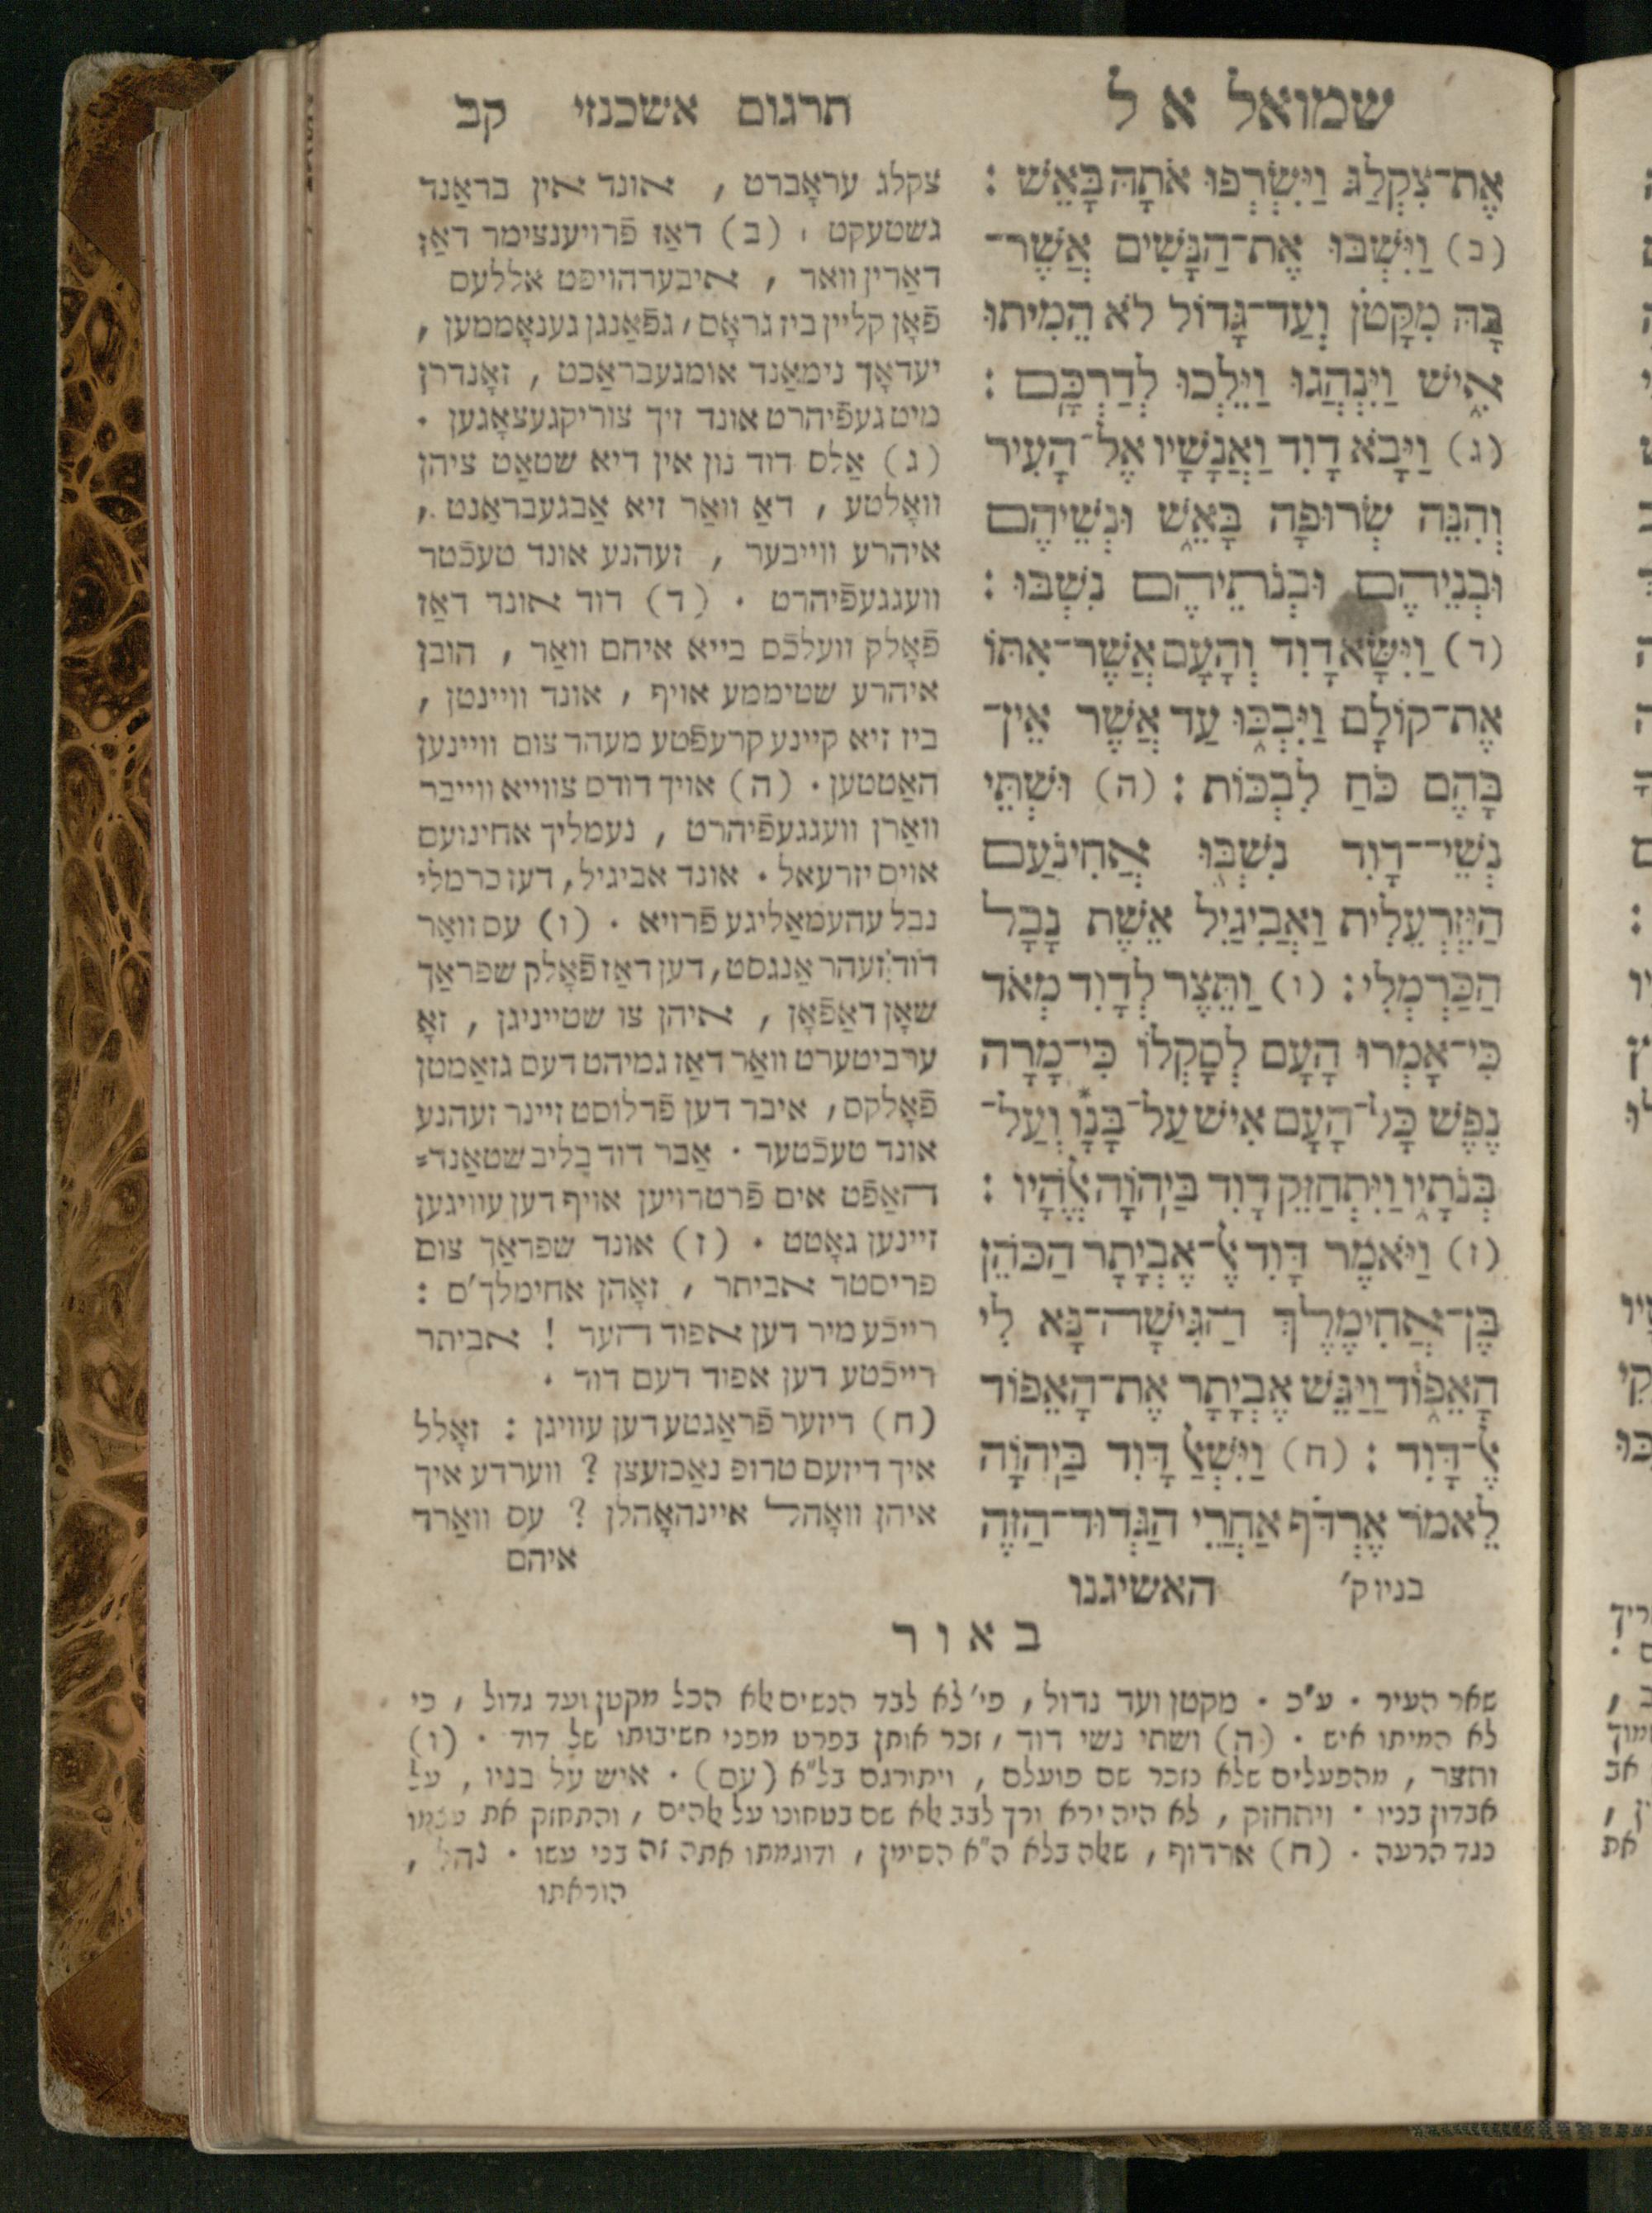 שמואל א ל
תרגום אשכנזי קב
אֶת־צִקְלַג וַיִּשְׂרְפוּ אֹתָהּ בָּאֵשׁ :
(ב) וַיִּשְׁבּוּ אֶת־הַנָּשִׁים אֲשֶׁר־
בָּהּ מִקָּטֹן וְעַד־גָּדוֹל לֹא הֵמִיתוּ
אִישׁ וַיִּנְהֲגוּ וַיֵּלְכוּ לְדַרְכָּם :
(ג) וַיָּבֹא דָוִד וַאֲנָשָׁיו אֶל־הָעִיר
וְהִנֵּה שְׂרוּפָה בָּאֵשׁ וּנְשֵׁיהֶם
וּבְנֵיהֶם וּבְנֹתֵיהֶם נִשְׁבּוּ :
(ד) וַיִּשָּׂא דָוִד וְהָעָם אֲשֶׁר־אִתּוֹ
אֶת־קוֹלָם וַיִּבְכּוּ עַד אֲשֶׁר אֵין־
בָּהֶם כֹּחַ לִבְכּוֹת : (ה) וּשְׁתֵּי
נְשֵׁי־דָוִד נִשְׁבּוּ אֲחִינֹעַם
הַיִּזְרְעֵלִית וַאֲבִיגַיִל אֵשֶׁת נָבָל
הַכַּרְמְלִי : (ו) וַתֵּצֶר לְדָוִד מְאֹד
כִּי־אָמְרוּ הָעָם לְסָקְלוֹ כִּי־מָרָה
נֶפֶשׁ כָּל־הָעָם אִישׁ עַל־בָּנָו* וְעַל־
בְּנֹתָיו וַיִּתְחַזֵּק דָּוִד בַּיהֹוָה אֱלֹהָיו :
(ז) וַיֹּאמֶר דָּוִד אֶל־אֶבְיָתָר הַכֹּהֵן
בֶּן־אֲחִימֶלֶךְ הַגִּישָׁה־נָּא לִי
הָאֵפוֹד וַיַּגֵּשׁ אֶבְיָתָר אֶת־הָאֵפוֹד
אֶל־דָּוִד : (ח) וַיִּשְׁאַל דָּוִד בַּיהֹוָה
לֵאמֹר אֶרְדֹּף אַחֲרֵי הַגְּדוּד־הַזֶּה
בניו ק׳ האשיגנו
צקלג עראָברט , אונד אין בראַנד
גשטעקט . (ב) דאַז פֿרויענצימר דאַז
דאַרין וואר , איבערהויפט אללעס
פֿאָן קליין ביז גראָס , גפֿאַנגן גענאָממען ,
יעדאָך נימאַנד אומגעבראַכט , זאָנדרן
מיט געפֿיהרט אונד זיך צוריקגעצאָגען .
(ג) אַלס דוד נון אין דיא שטאַט ציהן
וואָלטע , דאַ וואַר זיא אַבגעבראַנט ,
איהרע ווייבער , זעהנע אונד טעכֿטר
וועגגעפֿיהרט . (ד) דוד אונד דאַז
פֿאָלק וועלכֿס בייא איהם וואַר , הובן
איהרע שטיממע אויף , אונד וויינטן ,
ביז זיא קיינע קרעפֿטע מעהר צום וויינען
האַטטען . (ה) אויך דודס צווייא ווייבר
וואַרן וועגגעפֿיהרט , נעמליך אחינועם
אויס יזרעאל . אונד אביגיל , דעז כרמלי
נבל עהעמאַליגע פֿרויא . (ו) עס וואַר
דוד זעהר אַנגסט , דען דאַז פֿאָלק שפראַך
שאָן דאַפֿאָן , איהן צו שטייניגן , זאָ
ערביטערט וואַר דאַז גמיהט דעס גזאַמטן
פֿאָלקס , איבר דען פֿרלוסט זיינר זעהנע
אונד טעכֿטער . אַבר דוד בליב שטאַנד=
האַפֿט אים פֿרטרויען אויף דען עוויגען
זיינען גאָטט . (ז) אונד שפראַך צום
פריסטר אביתר , זאָהן אחימלך׳ס :
רייכֿע מיר דען אפוד הער ! אביתר
רייכֿטע דען אפוד דעם דוד .
(ח) דיזער פֿראַגטע דען עוויגן : זאָלל
איך דיזעם טרופ נאַכזעצן ? ווערדע איך
איהן וואָהל איינהאָהלן ? עס וואַרד
איהם
באור
שאר העיר . ע״כ . מקטן ועד גדול , פי׳ לא לבד הנשים אלא הכל מקטן ועד גדול , כי
לא המיתו איש . (ה) ושתי נשי דוד , זכר אותן בפרט מפני חשיבותו של דוד . (ו)
ותצר , מהפעלים שלא נזכר שם פועלם , ויתורגם בל״א (עס) . איש על בניו , על
אבדון בניו . ויתחזק , לא היה ירא ורך לבב אלא שם בטחונו על אלהים , והתחזק את עצמו
נגד הרעה . (ח) ארדוף , שאלה בלא ה״א הסימן , ודוגמתו אתה זה בני עשו .
הוראתו